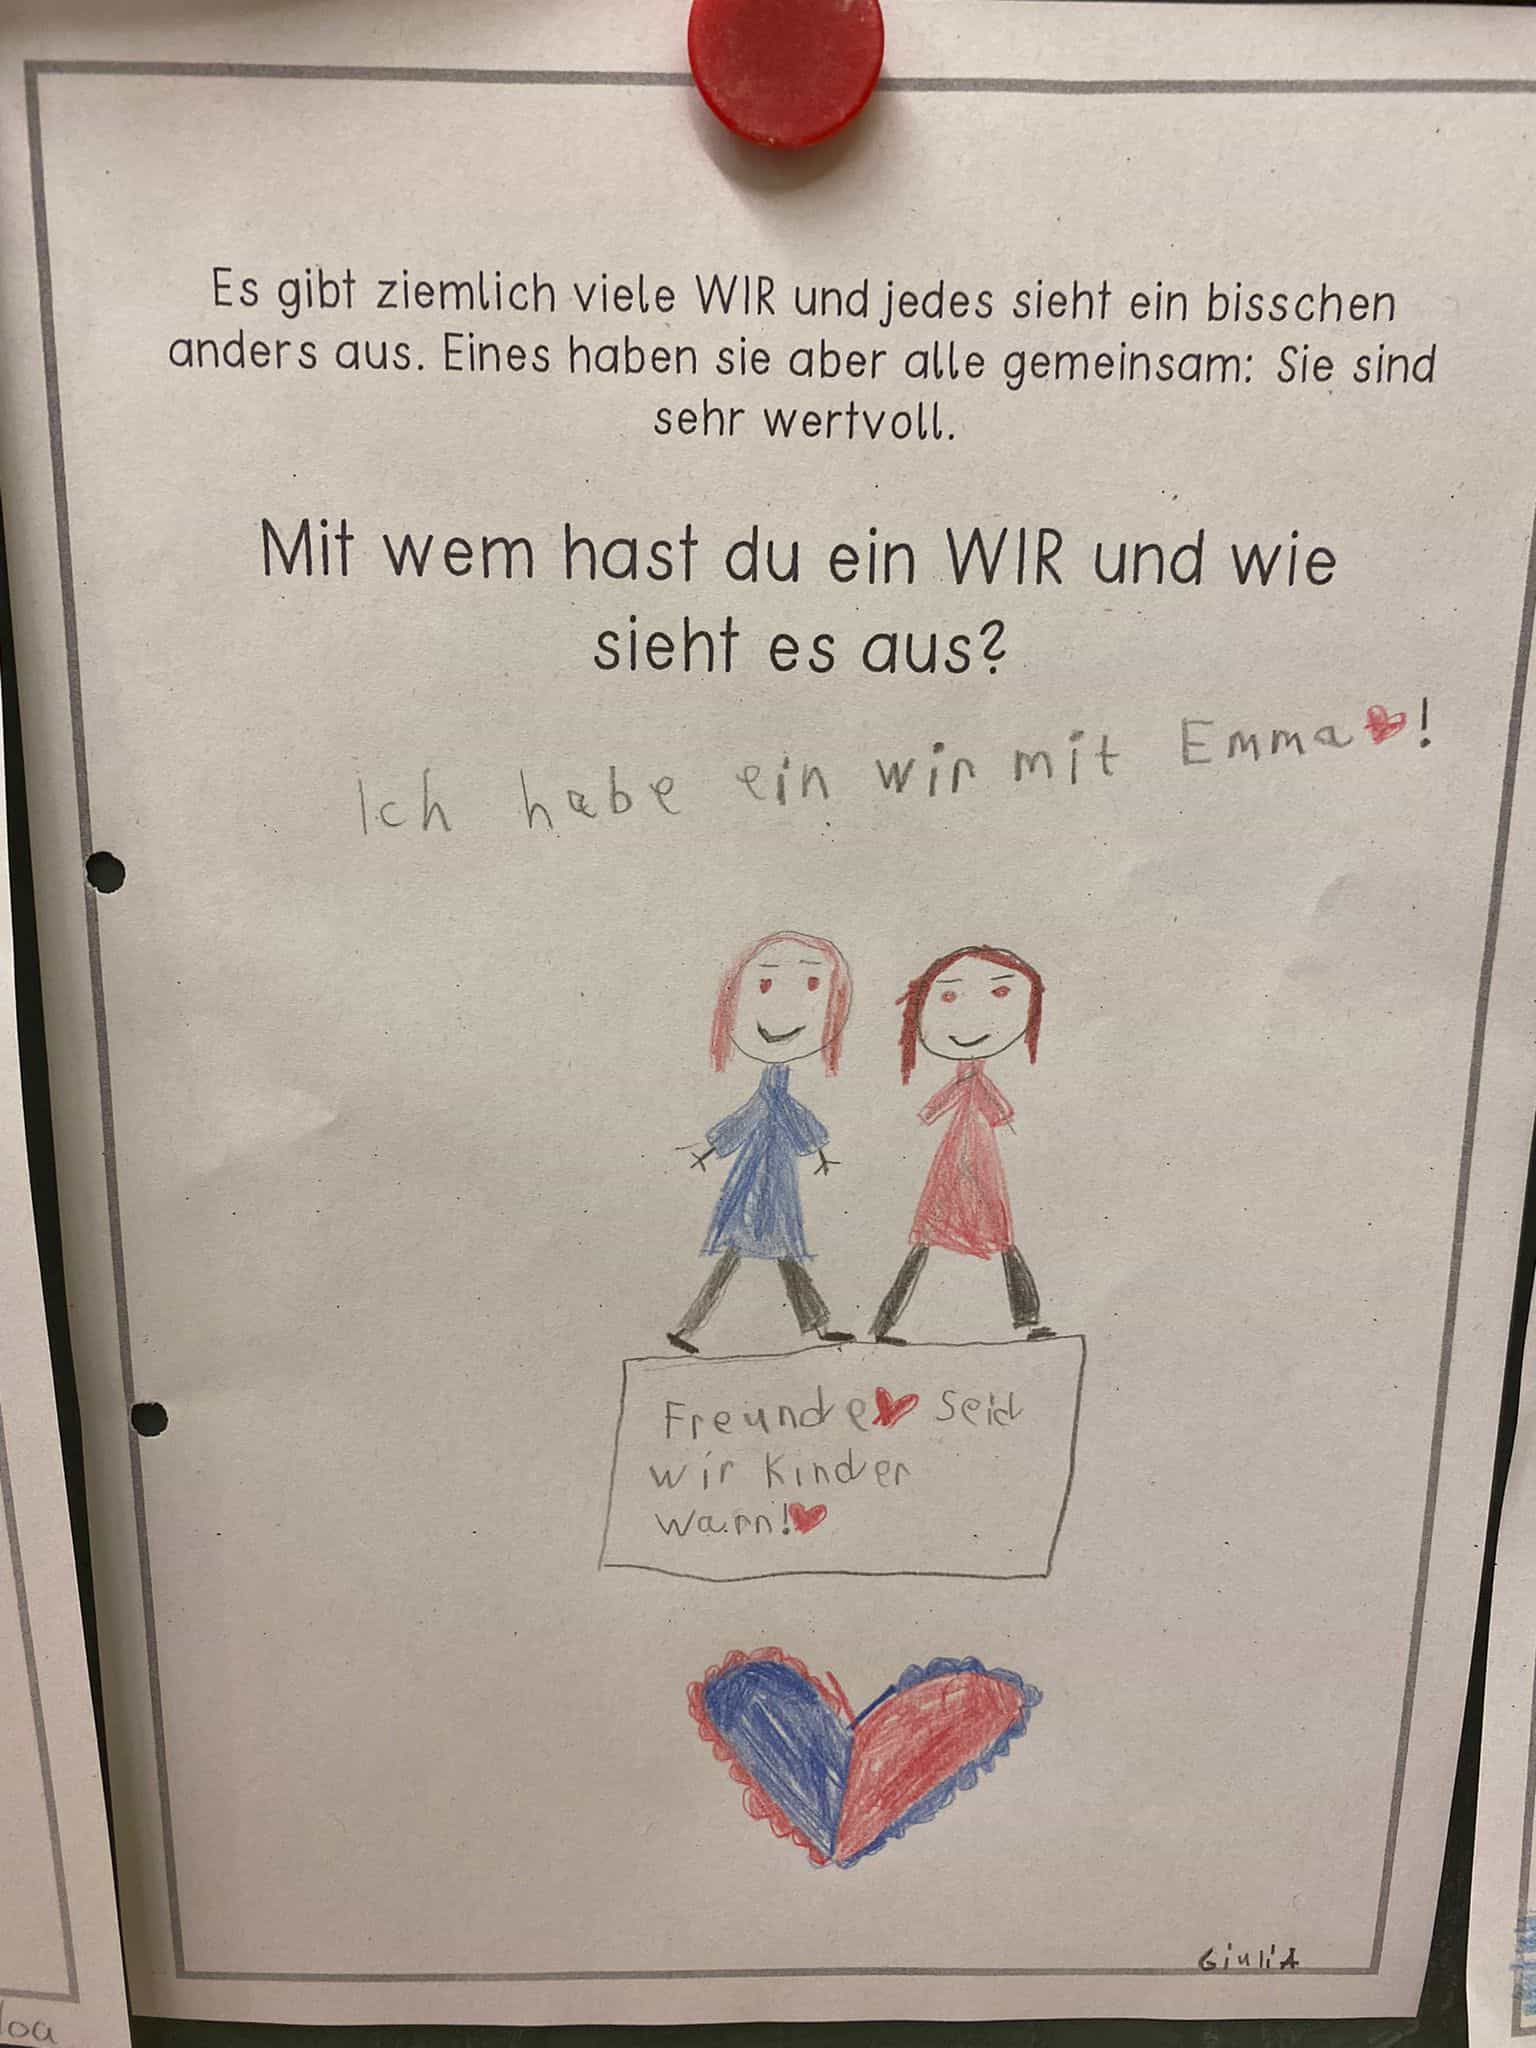 Es gibt ziemlich viele WIR und jedes sieht ein bisschen
anders aus. Eines haben sie aber alle gemeinsam: Sie sind
sehr wertvoll.
Mit wem hast du ein WIR und wie
sieht es aus?
Ich habe ein wir mit Emma❤!
Freunde❤ seid
wir Kinder
warn!❤
GiuliA